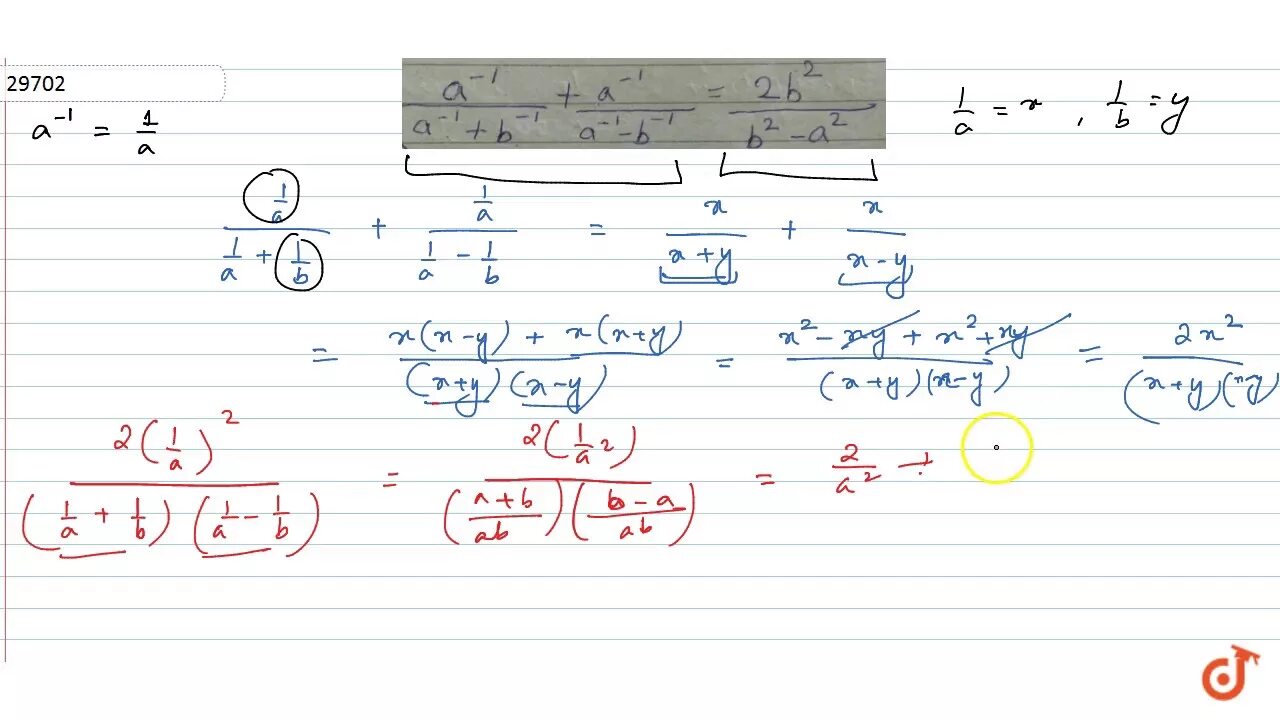 29702
a⁻¹ = 1/a
a⁻¹/(a⁻¹ + b⁻¹) + a⁻¹/(a⁻¹ - b⁻¹) = 2b²/(b² - a²)
1/a = x , 1/b = y
(1/a)/(1/a + 1/b) + (1/a)/(1/a - 1/b) = x/(x + y) + x/(x - y)
= (x(x - y) + x(x + y))/((x + y)(x - y)) = (x² - xy + x² + xy)/((x + y)(x - y)) = 2x²/((x + y)(x - y))
2(1/a)²/((1/a + 1/b)(1/a - 1/b)) = 2(1/a²)/(((a + b)/ab)((b - a)/ab)) = 2/a² ÷